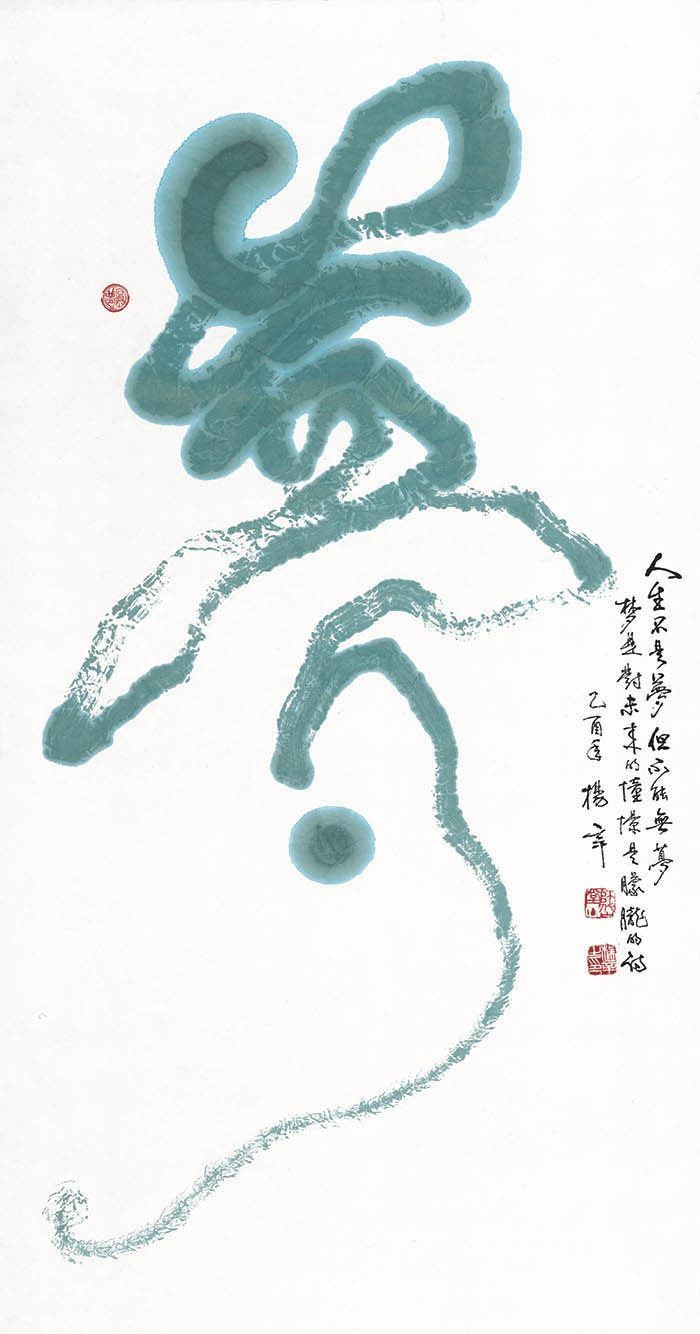 夢
人生不是夢但不能無夢
梦是對未来的憧憬是朦朧的詩
乙酉年 楊辛